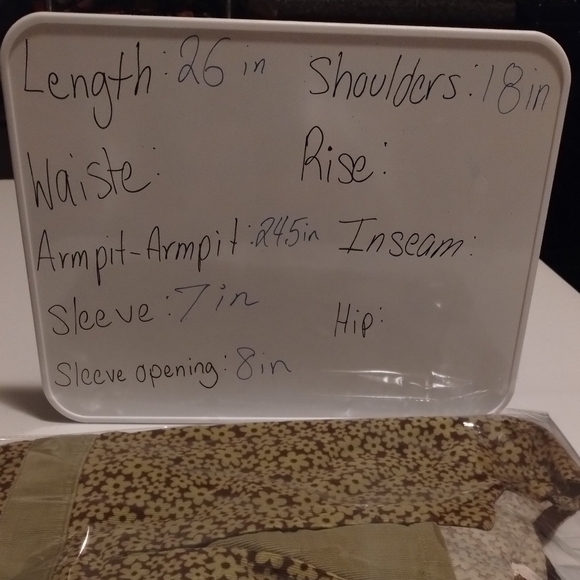 Length: 26 in
Shoulders: 18in
Waiste:
Rise:
Armpit-Armpit: 24.5in
Inseam:
Sleeve: 7 in
Hip:
Sleeve opening: 8in